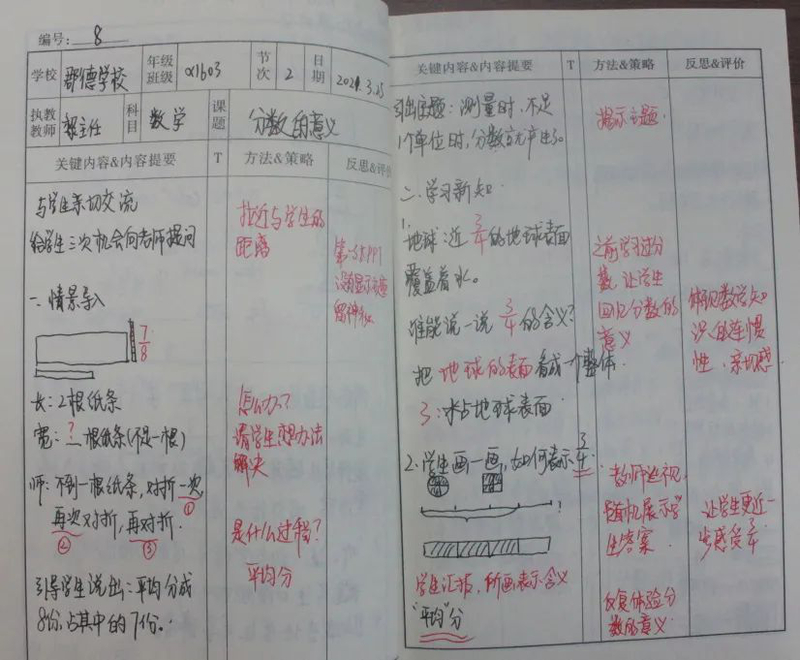 编号: 8
学校 年级班级 α1603 节次 2 日期
执教教师 科目 数学 课题 分数的意义
关键内容&内容提要 T 方法&策略 反思&评价
与学生亲切交流
给学生三次机会向老师提问
拉近与学生的
距离
第一张PPT
没有显示主题
一、情景导入
7/8
长:2根纸条
宽:? 根纸条(不足一根)
怎么办?
请学生想办法
解决
师:不到一根纸条,对折一次
①
再次对折,再对折.
② ③
是什么过程?
平均分
引导学生说出:平均分成
8份,占其中的7份.
关键内容&内容提要 T 方法&策略 反思&评价
引出主题:测量时,不足
1个单位时,分数就产生了。
揭示主题.
二、学习新知
1.
地球:近3/4的地球表面
覆盖着水。
谁能说一说3/4的含义?
把地球的表面看成一个整体.
3:水占地球表面
之前学习过分
数,让学生
回忆分数的
意义
体现数学知
识的连惯
性、亲切感
2.学生画一画,如何表示3/4
?
教师巡视,
随机展示学
生答案
让学生更近一
步感受3/4
学生汇报,所画表示含义
"平均"分
反复体验分
数的意义